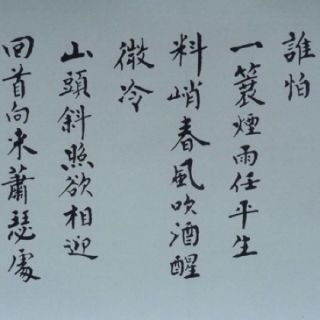 誰怕
一蓑煙雨任平生
料峭春風吹酒醒
微冷
山頭斜照欲相迎
回首向来蕭瑟處